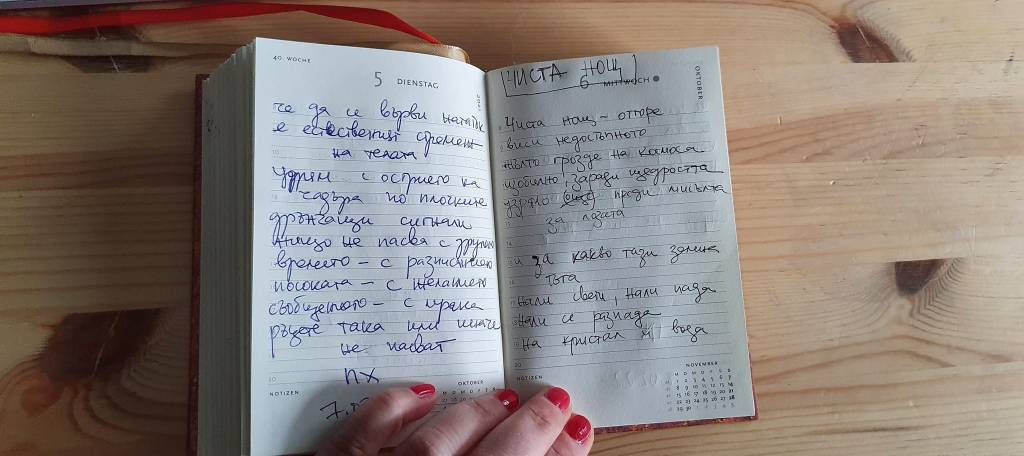 40. WOCHE
5 DIENSTAG
че да се върви нататък
е естественият стремеж
на телата
Удрям с острието на
чадъра по плочките
дрънчащи сигнали
нищо не пасва с другото
времето – с
посоката – с желанието
съобщението – с
ръцете така или иначе
не пасват
пх
NOTIZEN
OKTOBER
ЧИСТА НОЩ
6 MITTWOCH
OKTOBER
Чиста нощ – отгоре
виси недостъпното
жълто грозде на космоса
изобилно, заради щедростта
узряло още преди мисълта
за лозата
и за какво тази
тъга
нали свети, нали пада
нали се разпада
на кристал и вода
NOTIZEN
NOVEMBER
M D M D F S S